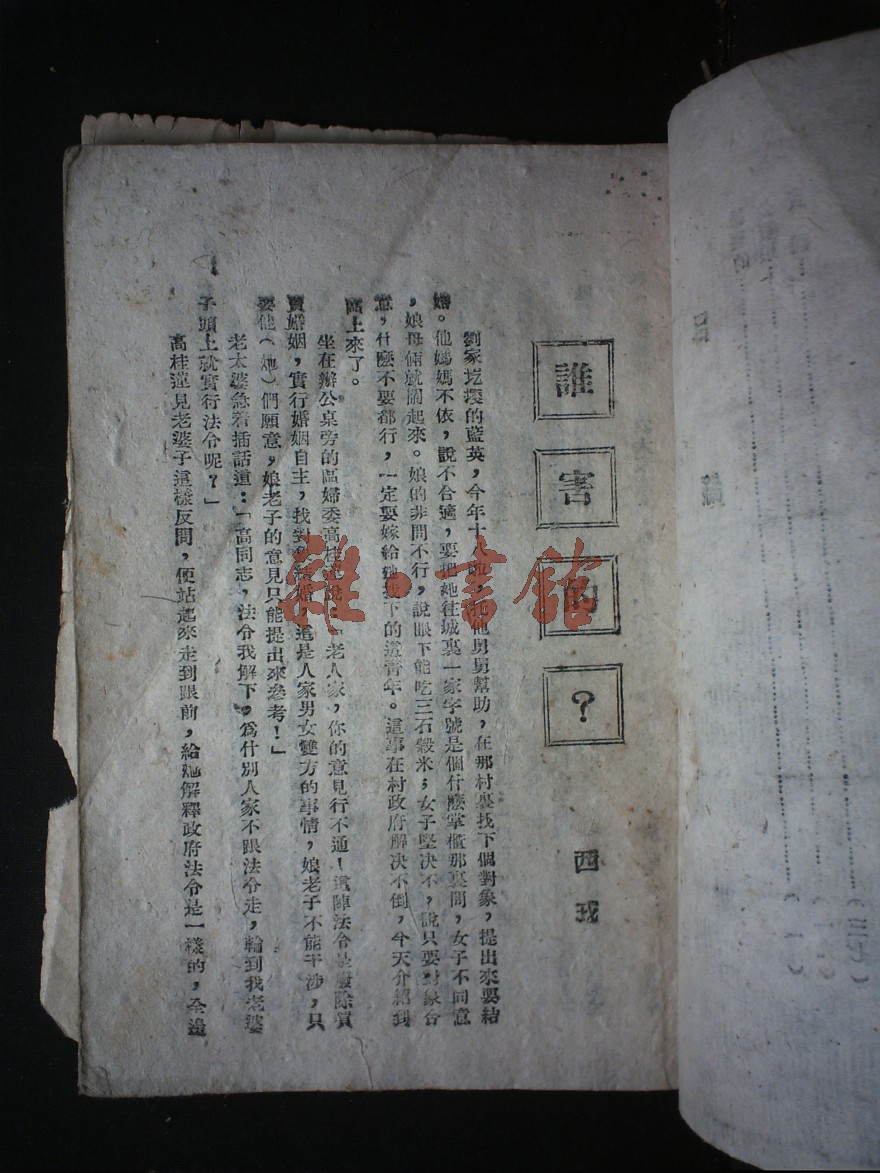 誰害的？
西戎
劉家圪墶的藍英，今年十八啦，托他舅舅幫助，在那村裏找下個對象，提出來要結
婚。他媽媽不依，說不合適，要把她往城裏一家字號是個什麼掌櫃那裏問，女子不同意
，娘母倆就鬧起來。娘的非問不行，說眼下能吃三石穀米；女子堅决不，說只要對象合
意，什麼不要都行，一定要嫁給她找下的這青年。這事在村政府解决不倒，今天介紹到
區上來了。
坐在辦公桌旁的區婦委高桂蓮說：「老人家，你的意見行不通！這陣法令是廢除買
賣婚姻，實行婚姻自主，找對象結婚，這是人家男女雙方的事情，娘老子不能干涉，只
要他（她）們願意，娘老子的意見只能提出來參考！」
老太婆急着插話道：「高同志，法令我解下，爲什別人家不跟法令走，輪到我老婆
子頭上就實行法令呢？」
高桂蓮見老婆子這樣反問，便站起來走到跟前，給她解釋政府法令是一樣的，全邊
雜·書館